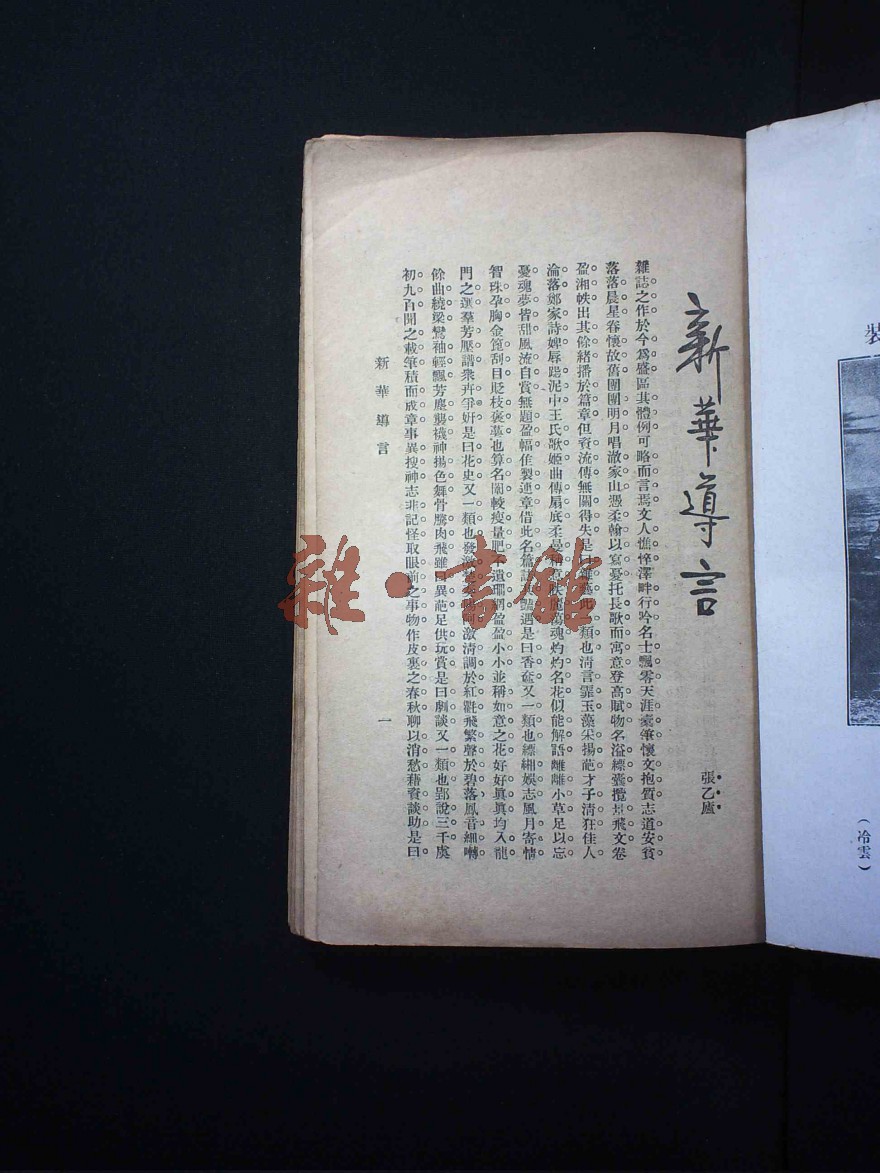 新華導言
張乙廬
雜誌之作於今爲盛區其體例可略而言焉文人憔悴澤畔行吟名士飄零天涯橐筆懷文抱質志道安貧
落落晨星眷懷故舊團圞明月唱澈家山憑柔翰以寫憂托長歌而寓意登高賦物名溢縹囊攬景飛文卷
盈湘帙出其餘緒播於篇章但資流傳無關得失是曰雜藝此一類也清言霏玉藻采揚葩才子清狂佳人
淪落鄭家詩婢辱跽泥中王氏歌姬曲傳扇底柔曼魂灼灼名花似能解語離離小草足以忘
憂魂夢皆甜風流自賞無題盈幅隹製連章借此名篇遇是曰香奩又一類也縹緗娛志風月寄情
智珠孕胸金篦刮目貶枝褒蕊也算名閨較瘦量肥不遺珊網盈盈小小並稱如意之花好好眞眞均入龍
門之選羣芳壓譜衆卉爭姸是曰花史又一類也發激清調於紅氍飛繁聲於碧落鳳音細囀
餘曲繞梁鸞袖輕飄芳塵襲襪神揚色舞骨騰肉飛雖曰異葩足供玩賞是曰劇談又一類也郢說三千虞
初九百聞之載筆積而成章事異搜神志非記怪取眼前之事物作皮裏之春秋聊以消愁藉資談助是曰
新華導言
一
雜·書館
裝
（冷雲）